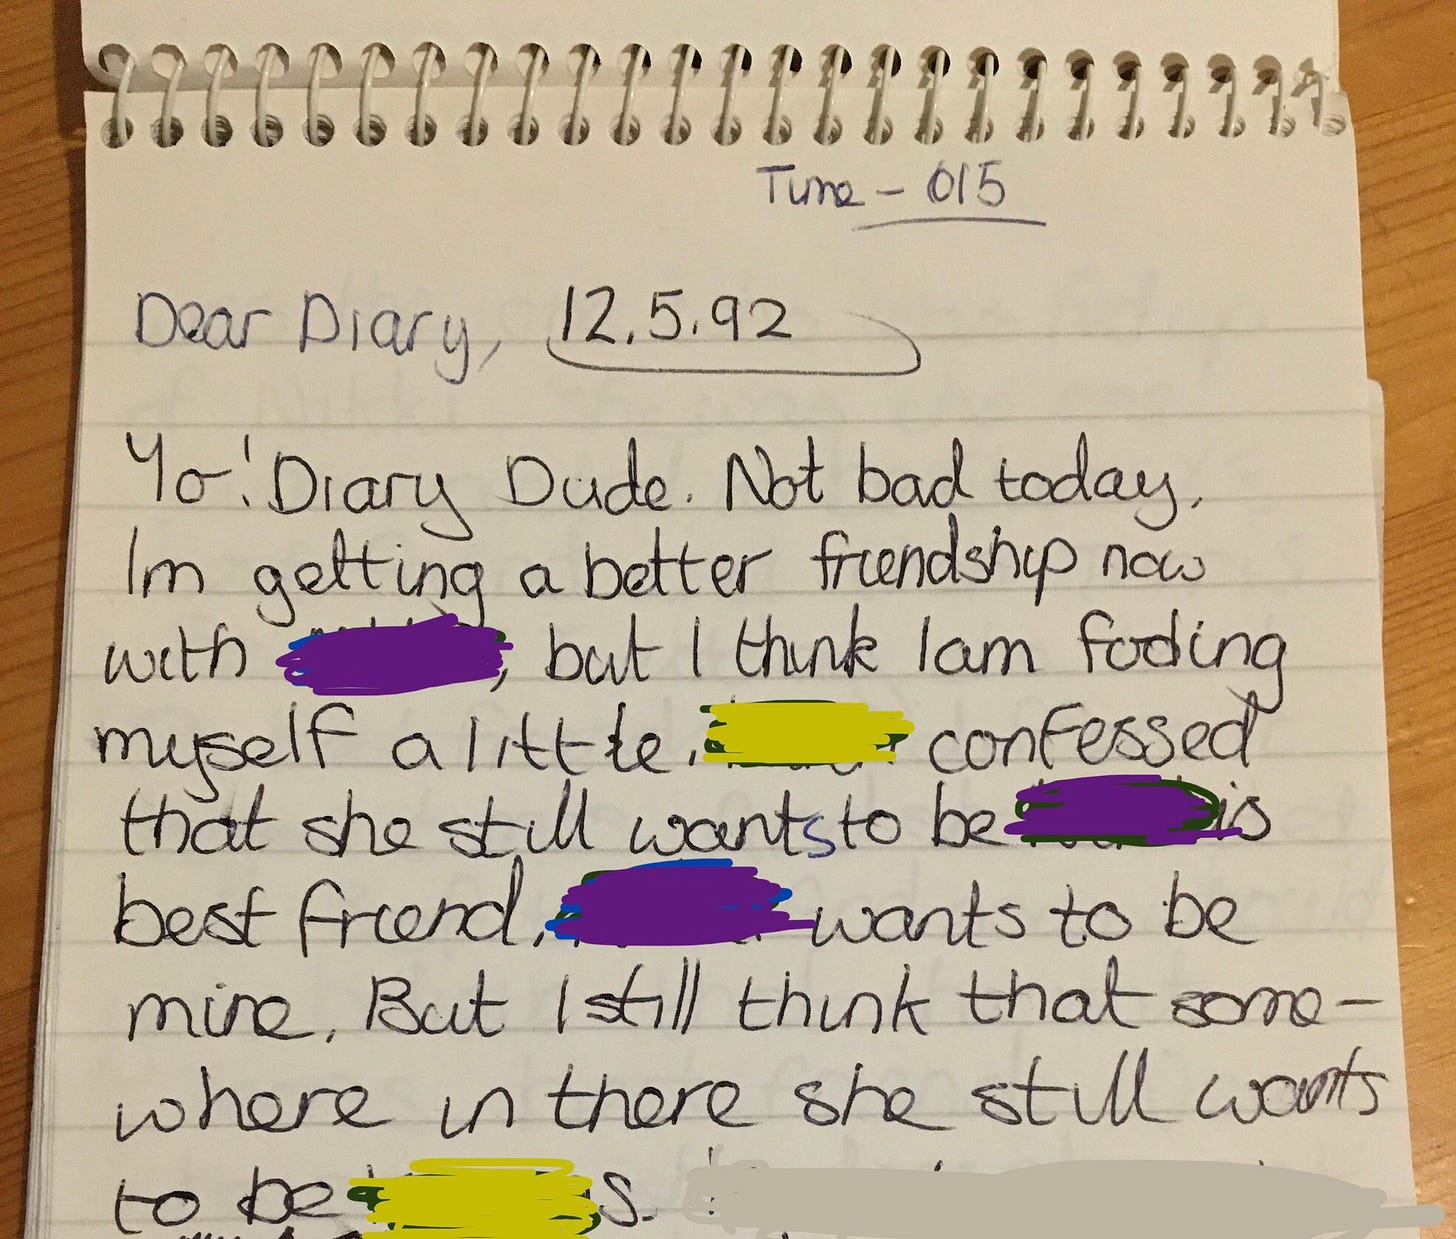 Time - 015
Dear Diary, 12.5.92
Yo! Diary Dude. Not bad today,
Im getting a better friendship now
with , but I think Iam foding
myself a little. confessed
that she still wants to be is
best friend, wants to be
mine. But I still think that some-
where in there she still wants
to be s.